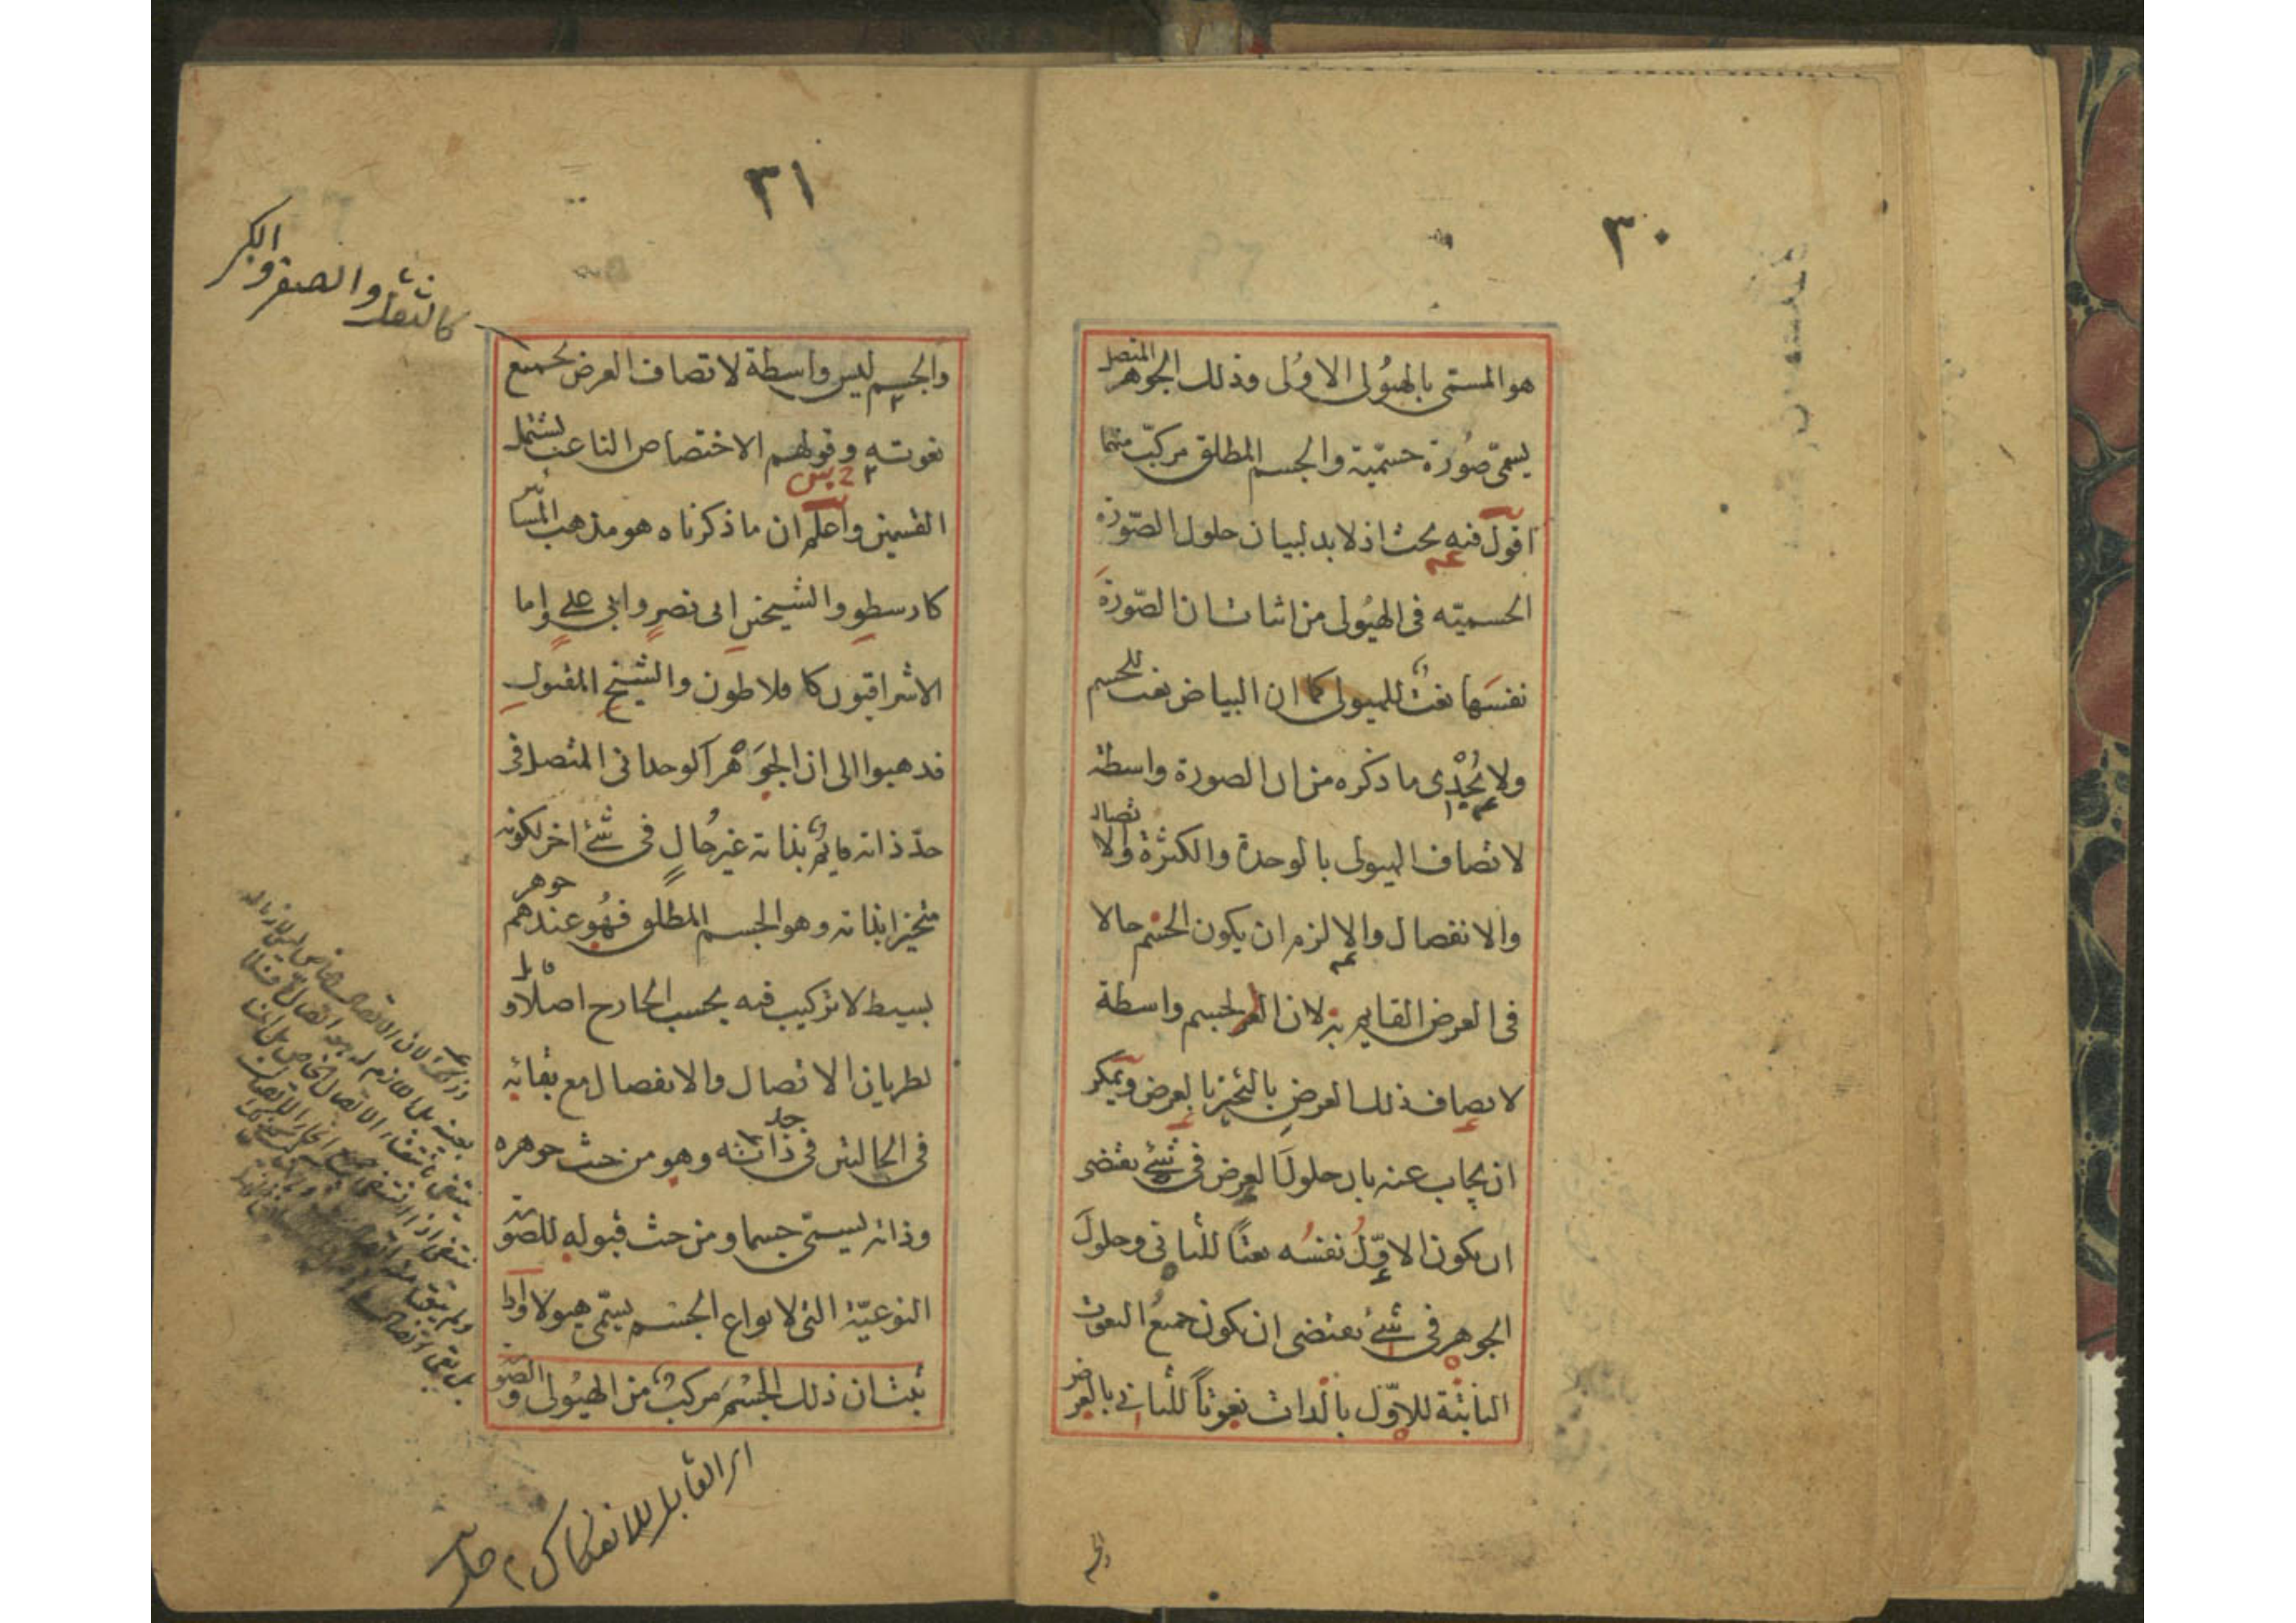 ٣٠
هو المسمى بالهيولى الاولى وذلك الجوهر المتصل
يسمى صورة جسمية والجسم المطلق مركب منهما
اقول فيه بحث اذ لا بد لبيان حلول الصورة
الجسمية فى الهيولى من اثبات ان الصورة
نفسها نعت للهيولى كما ان البياض نعت للجسم
ولا يجدى ما ذكره من ان الصورة واسطة
لاتصاف الهيولى بالوحدة والكثرة والاتصال
والانفصال والا لزم ان يكون الجسم حالا
فى العرض القايم به لان الجسم واسطة
لاتصاف ذلك العرض بالتحيز بالعرض ويمكن
ان يجاب عنه بان حلول العرض فى شئ يقتضى
ان يكون الاول نفسه نعتا للثانى وحلول
الجوهر فى شئ يقتضى ان يكون جميع النعوت
الثابتة للاول بالذات نعوتا للثانى بالعرض
والجسم
٣١
كالثقل والصغر والكبر
والجسم ليس واسطة لاتصاف العرض بجميع
نعوته وقولهم الاختصاص الناعت يشتمل
القسمين واعلم ان ما ذكرناه هو مذهب المشائين
كارسطو والشيخين ابى نصر وابى على واما
الاشراقيون كافلاطون والشيخ المقتول
فذهبوا الى ان الجوهر الوحدانى المتصل فى
حد ذاته قايم بذاته غير حال فى شئ اخر لكونه
متحيزا بذاته وهو الجسم المطلق فهو عندهم جوهر
بسيط لا تركيب فيه بحسب الخارج اصلا وقابل
لطريان الاتصال والانفصال مع بقائه
فى الحالتين فى حد ذاته وهو من حيث جوهره
وذاته يسمى جسما ومن حيث قبوله للصورة
النوعية التى لانواع الجسم يسمى هيولا واذا
ثبت ان ذلك الجسم مركب من الهيولى والصورة
اى القابل للانفكاك م حل